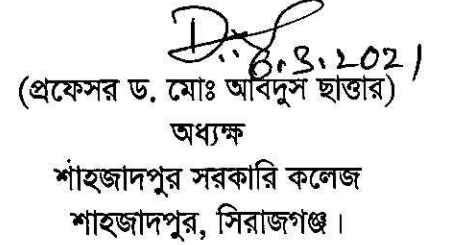 6.3.2021
(প্রফেসর ড. মোঃ আবদুস ছাত্তার)
অধ্যক্ষ
শাহজাদপুর সরকারি কলেজ
শাহজাদপুর, সিরাজগঞ্জ।